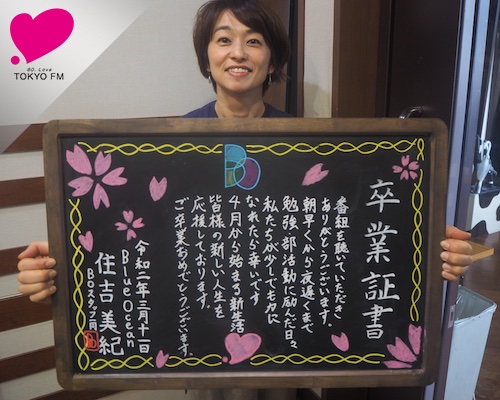 80. Love
TOKYO FM
BO
卒業証書
番組を聴いていただき
ありがとうございます。
朝早くから夜遅くまで
勉強、部活動に励んだ日々
私たちが少しでも力に
なれたら幸いです
4月から始まる新生活
皆様の新しい人生を
応援しております。
ご卒業おめでとうございます。
令和二年三月十一日
Blue Ocean
住吉美紀
BOスタッフ一同